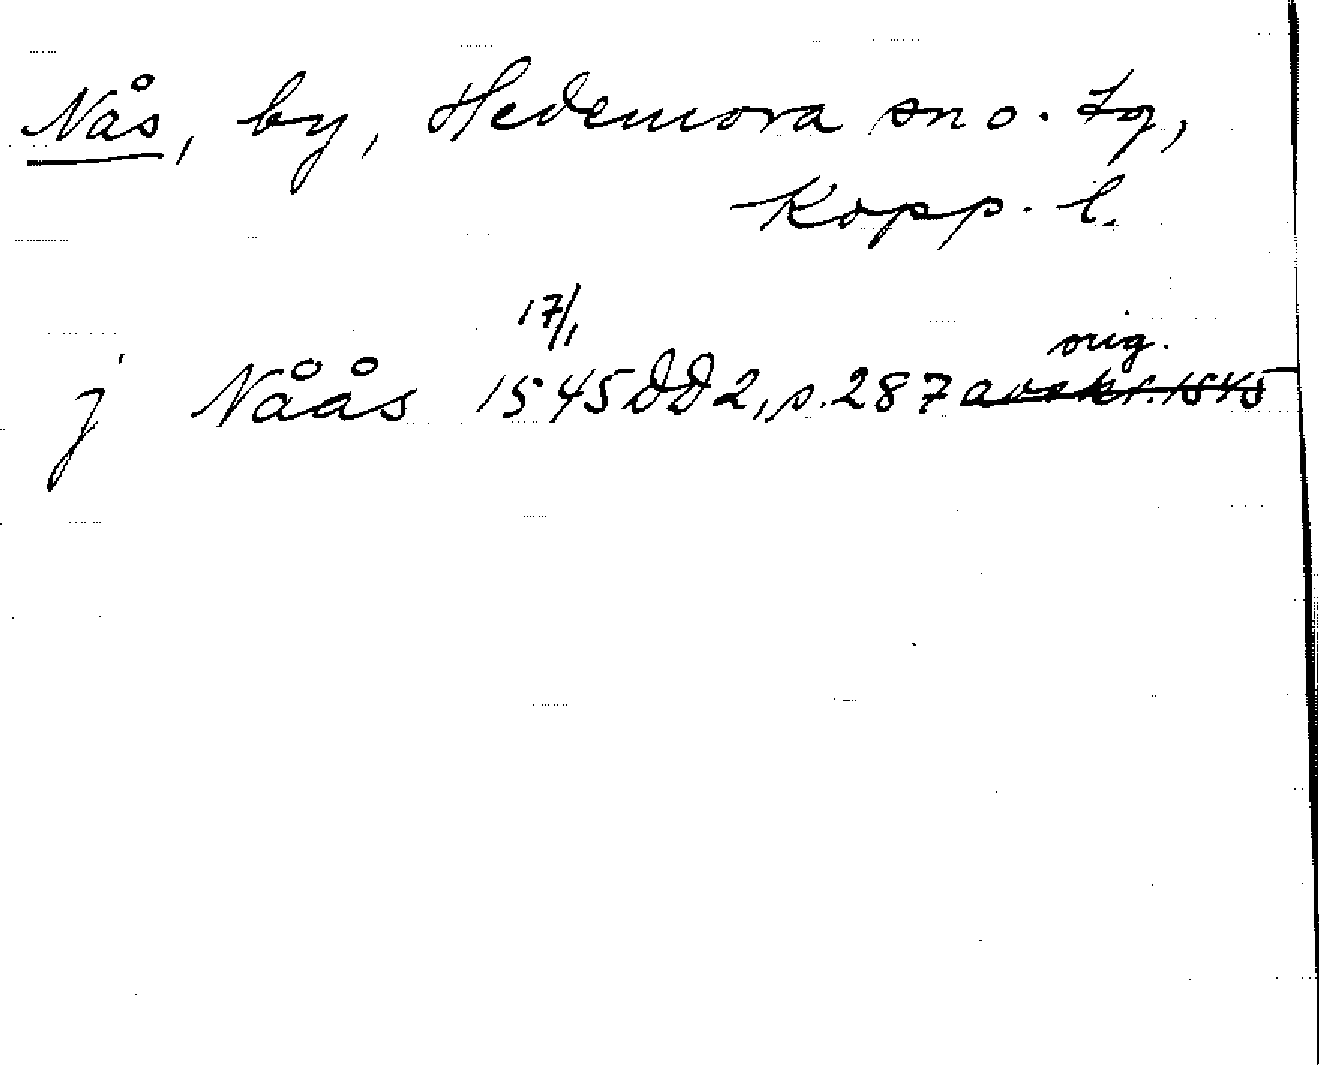 Nås, by, Hedemora sn o. tg,
Kopp. l.
17/1
orig.
j Nåås 1545 DD2, s. 287 avskr. 1545